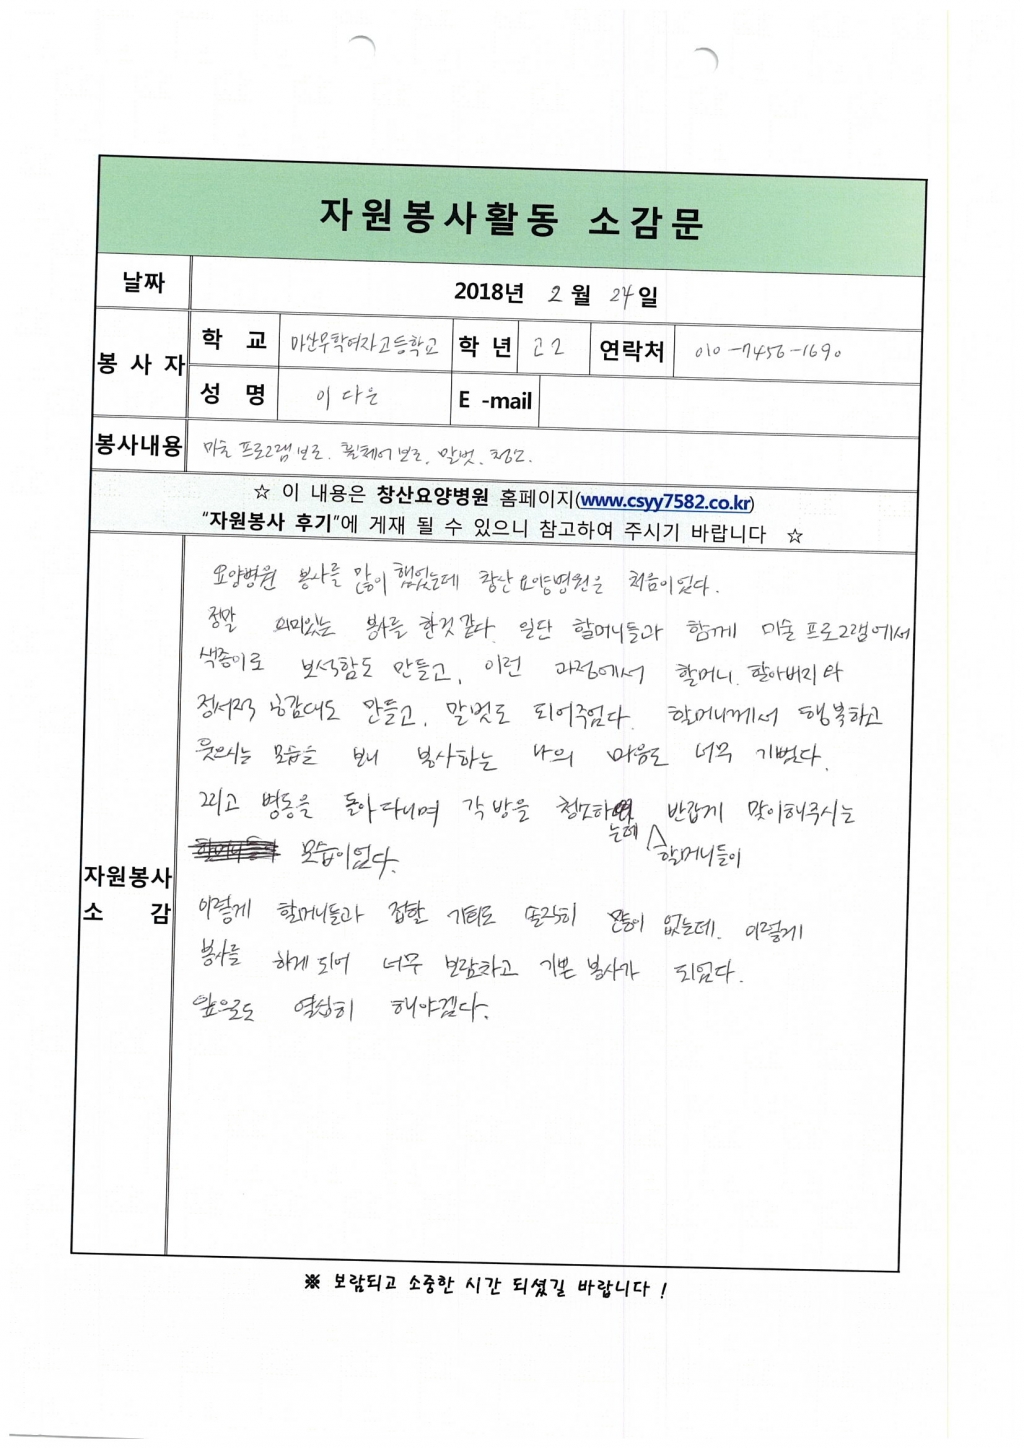 자원봉사활동 소감문
날짜 2018년 2월 24일
봉사자 학교 마산무학여자고등학교 학년 고2 연락처 010-7456-1690
성명 이다은 E -mail
봉사내용 미술 프로그램 보조, 휠체어 보조, 말벗, 청소.
☆ 이 내용은 창산요양병원 홈페이지(www.csyy7582.co.kr)
"자원봉사 후기"에 게재 될 수 있으니 참고하여 주시기 바랍니다 ☆
자원봉사 소감
요양병원 봉사를 많이 했었는데 창산요양병원은 처음이었다.
정말 의미있는 봉사를 한것 같다. 일단 할머니들과 함께 미술 프로그램에서
색종이로 보석함도 만들고, 이런 과정에서 할머니, 할아버지와
정서적 공감대도 만들고, 말벗도 되어주었다. 할머니께서 행복하고
웃으시는 모습을 보니 봉사하는 나의 마음도 너무 기뻤다.
그리고 병동을 돌아다니며 각 방을 청소하는데 할머니들이 반갑게 맞이해주시는
모습이었다.
이렇게 할머니들과 접할 기회도 솔직히 많이 없는데, 이렇게
봉사를 하게 되어 너무 보람차고 기쁜 봉사가 되었다.
앞으로도 열심히 해야겠다.
※ 보람되고 소중한 시간 되셨길 바랍니다 !